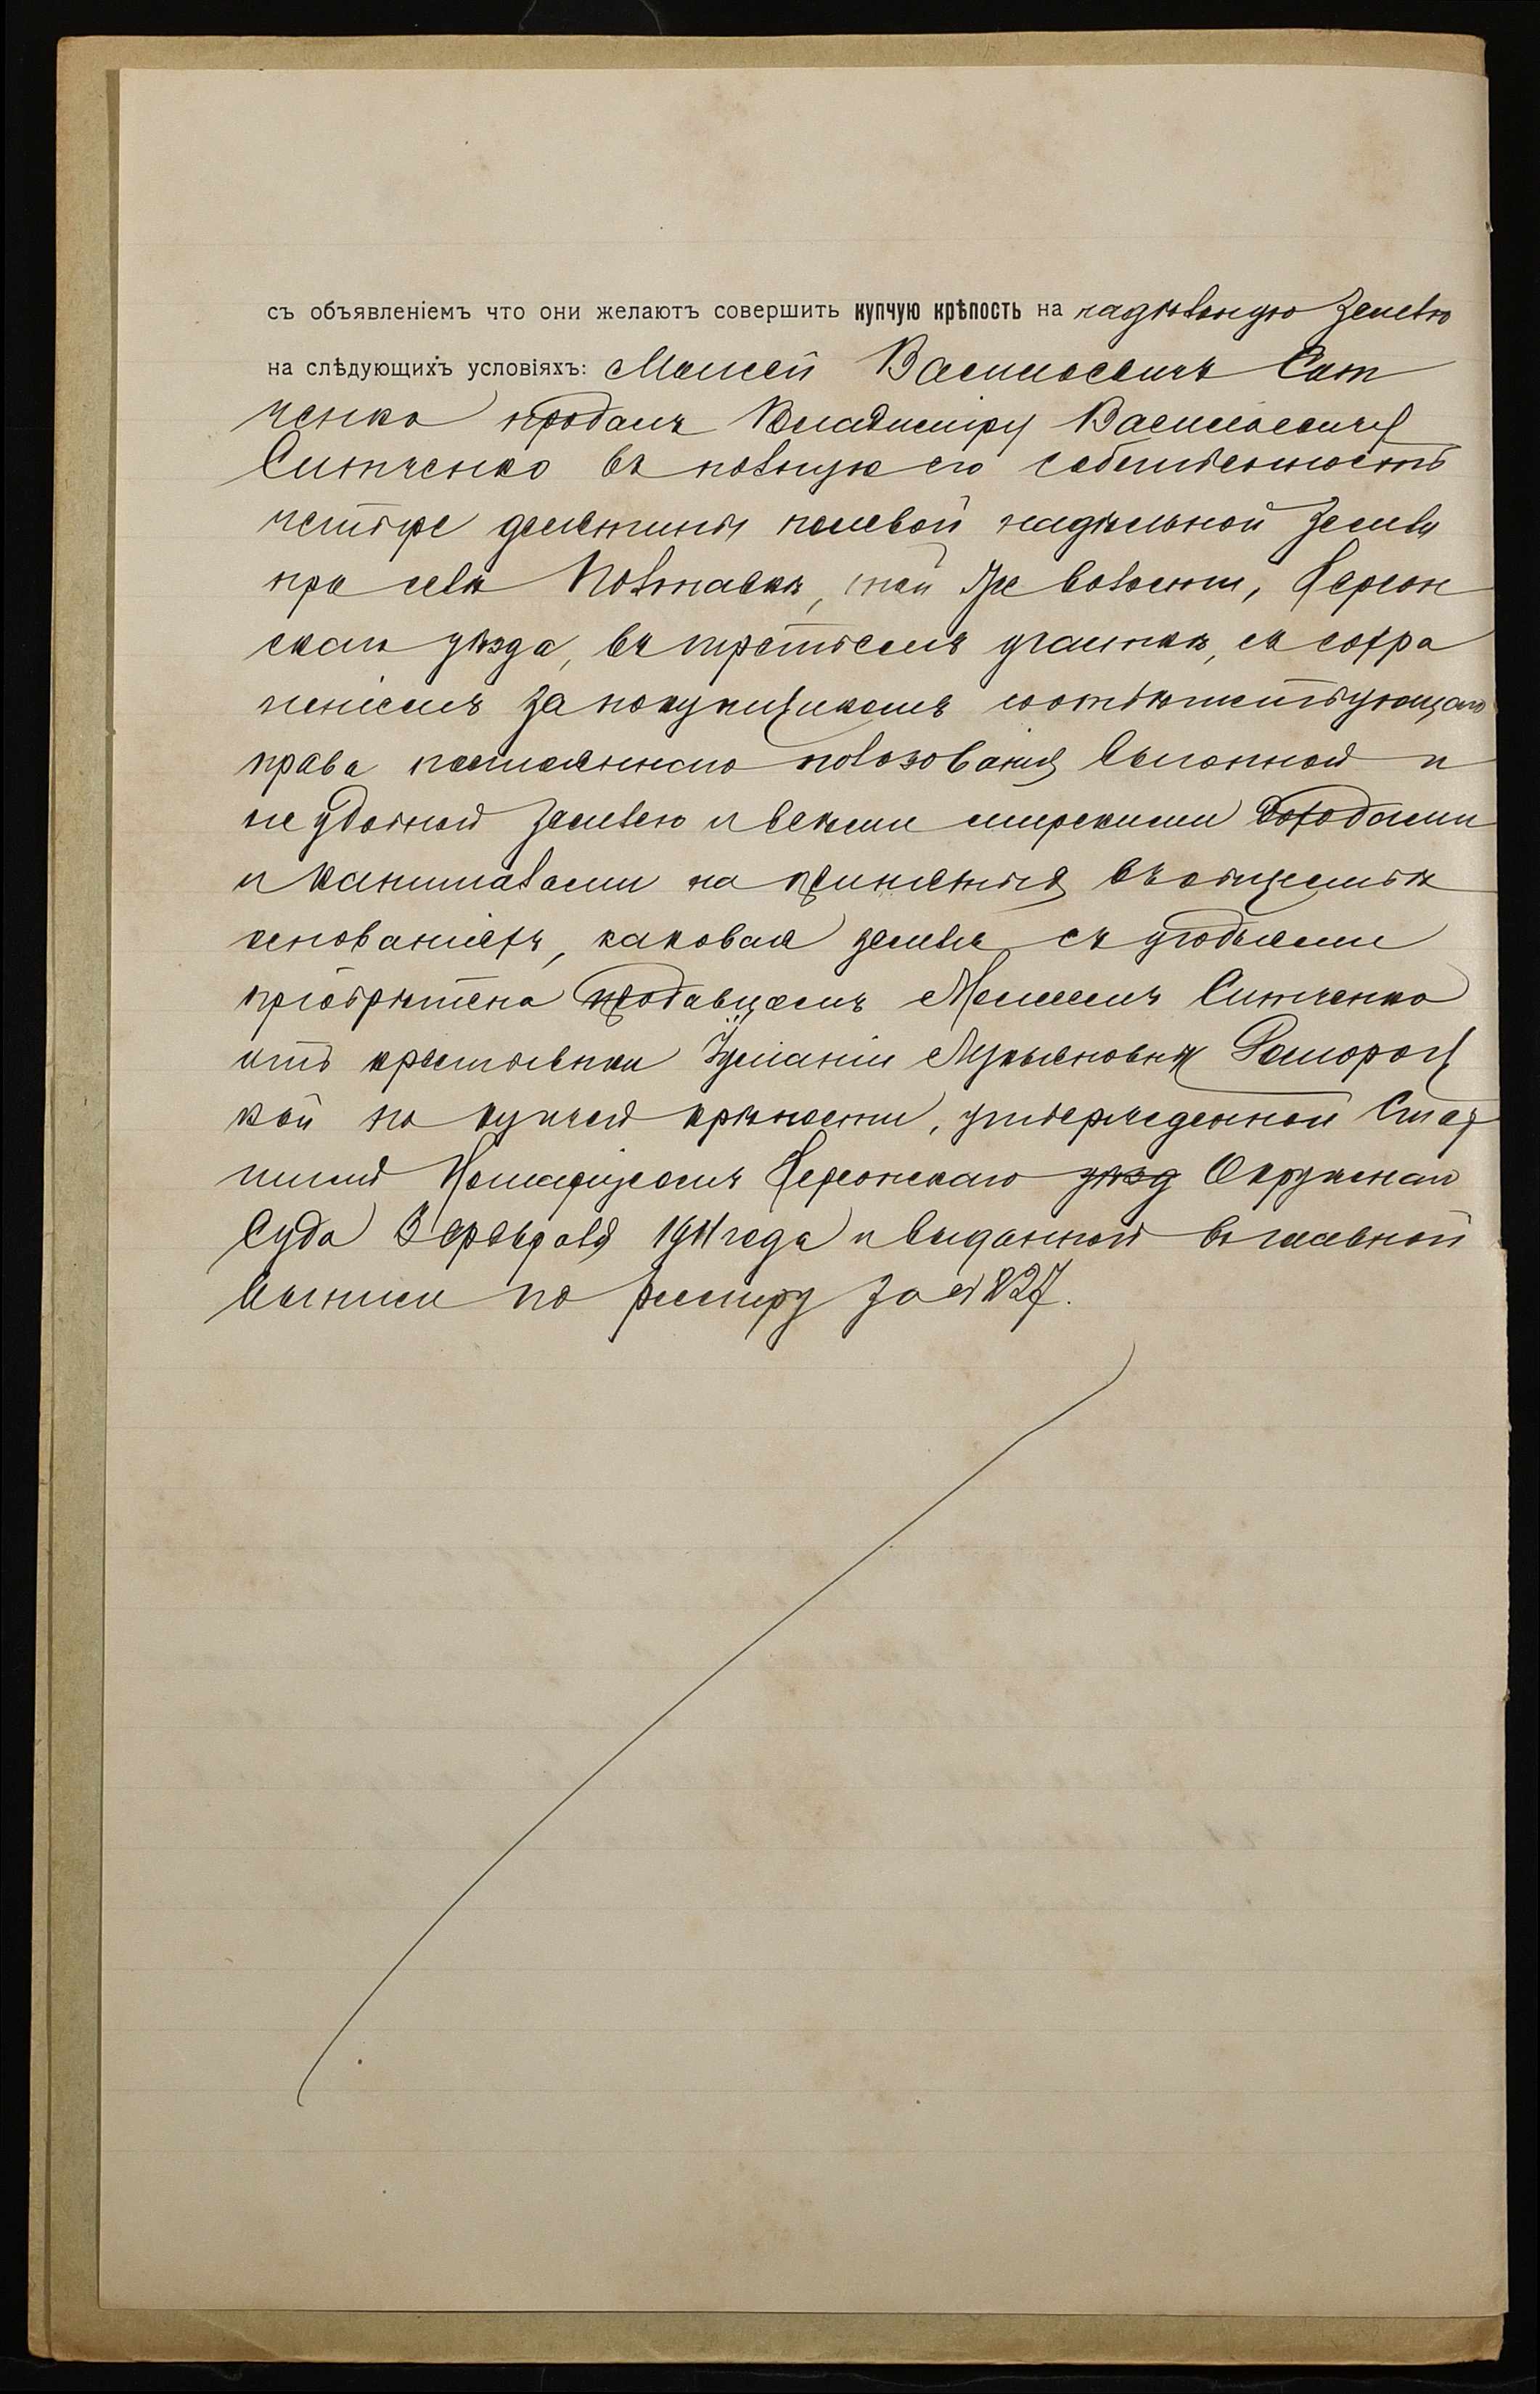 съ объявленіемъ что они желаютъ совершить купчую крѣпость на надѣльную землю
на слѣдующихъ условіяхъ: Моисей Васильевичъ Сит
ченко продалъ Владиміру Васильевичу
Ситченко въ полную его собственность
четыре десятины полевой надѣльной земли
при селѣ Полтавкѣ, той же волости, Херсон
скаго уѣзда, въ третьемъ участкѣ, съ сохра
неніемъ за покупщикомъ соотвѣтствующаго
права постояннаго пользованія выгонной и
неудобной землею и всѣми мірскими доходами
и капиталами на принятыхъ въ обществѣ
основаніяхъ, каковая земля съ угодьями
пріобрѣтена продавцомъ Моисеемъ Ситченко
отъ крестьянки Іуліаніи Лукьяновны
кой по купчей крѣпости, утвержденной Стар
шимъ Нотаріусомъ Херсонскаго уѣзд Окружнаго
Суда 3 февраля 1911 года и выданной въ главной
выписи по реестру за № 827.